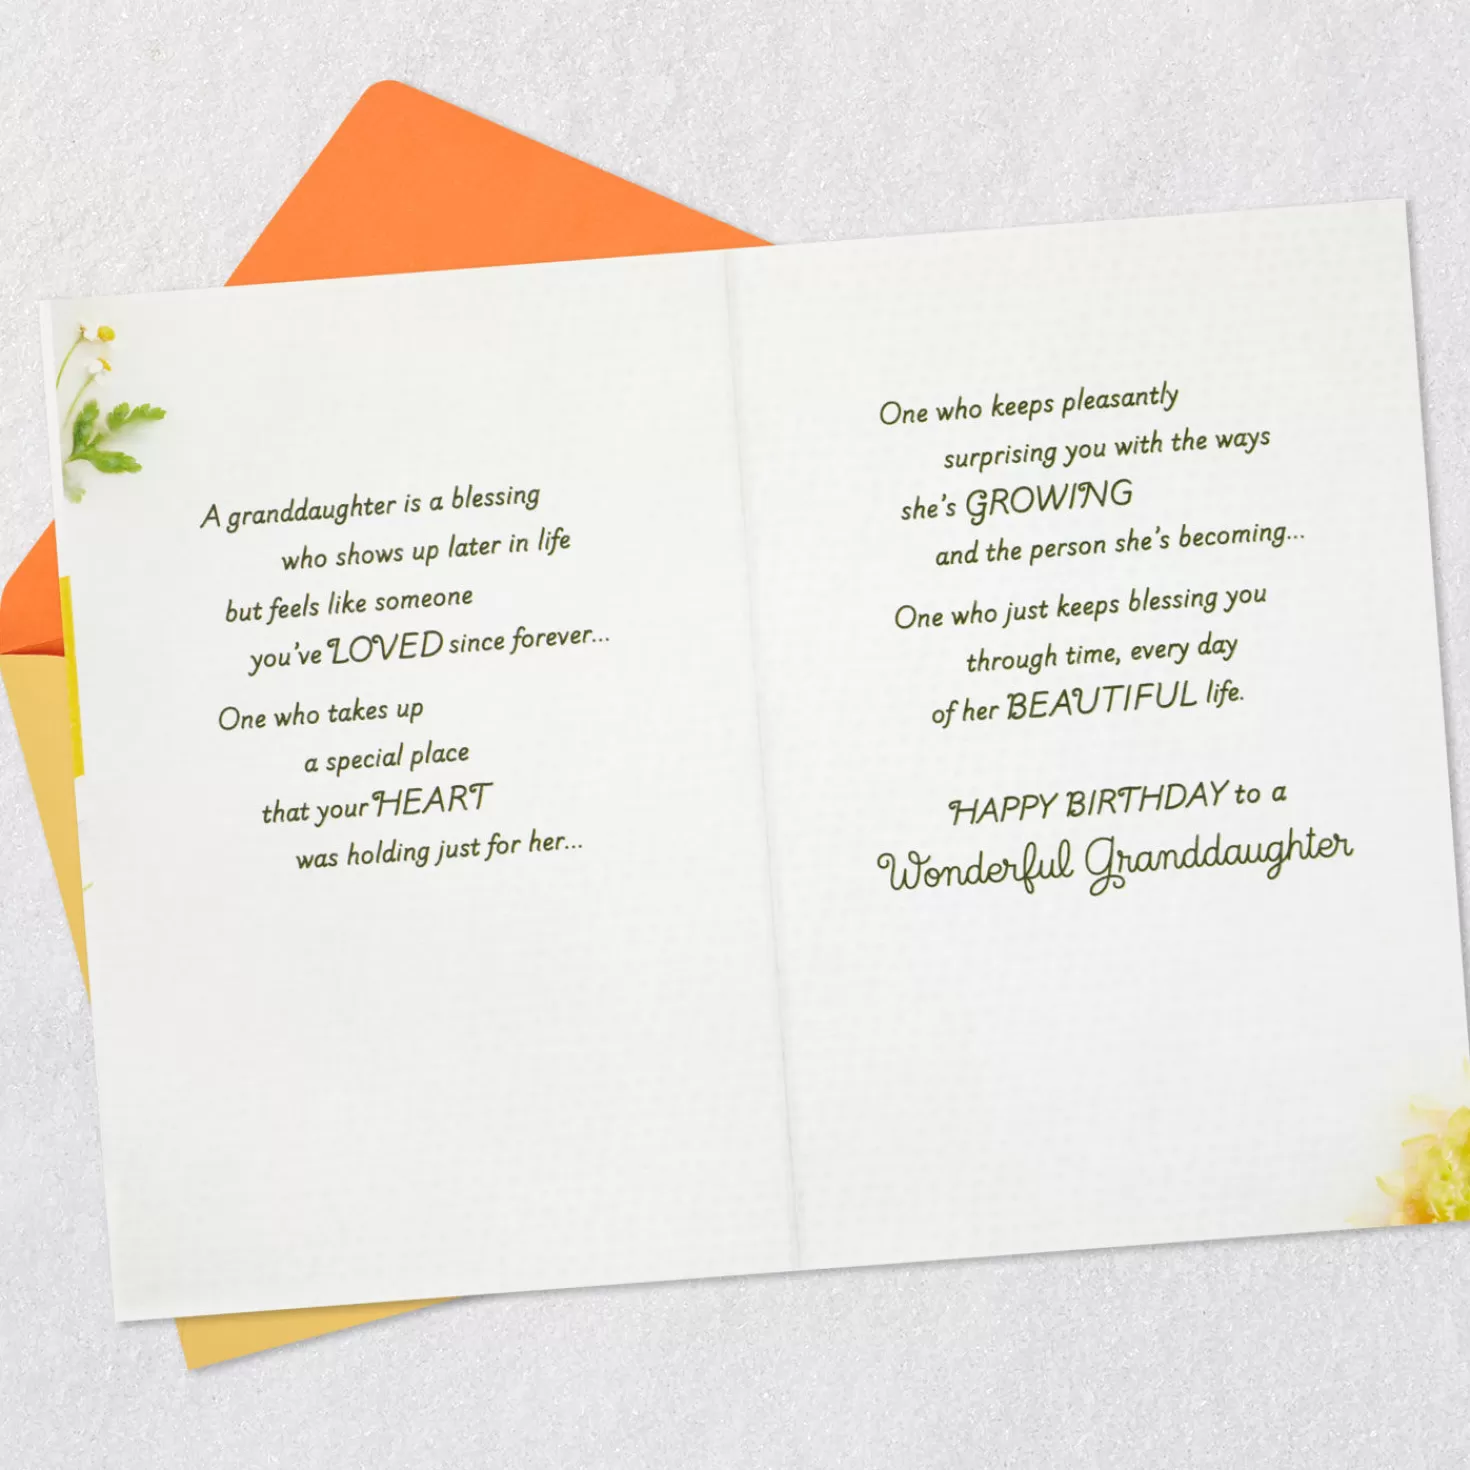 A granddaughter is a blessing
who shows up later in life
but feels like someone
you've LOVED since forever...
One who takes up
a special place
that your HEART
was holding just for her...
One who keeps pleasantly
surprising you with the ways
she's GROWING
and the person she's becoming...
One who just keeps blessing you
through time, every day
of her BEAUTIFUL life.
HAPPY BIRTHDAY to a
Wonderful Granddaughter